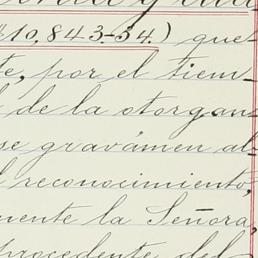 $10,843-34.) que
te, por el tiem-
de la otorgan-
se gravámen al
reconocimiento,
mente la Señora,
procedente del